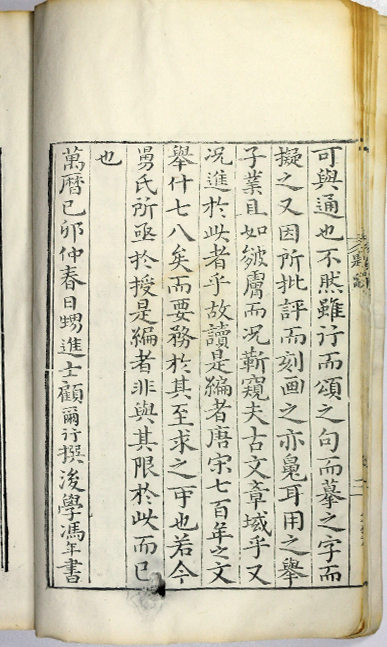 可與通也不然雖行而頌之句而摹之字而
擬之又因所批評而刻画之亦耳用之舉
子業且如皴膚而况蘄窺夫古文章域乎又
况進於此者乎故讀是編者唐宋七百年之文
舉什七八矣而要務於其至求之可也若今
舅氏所亟於授是編者非與其限於此而已
也
萬曆己卯仲春日甥進士顧爾行撰後學馮年書